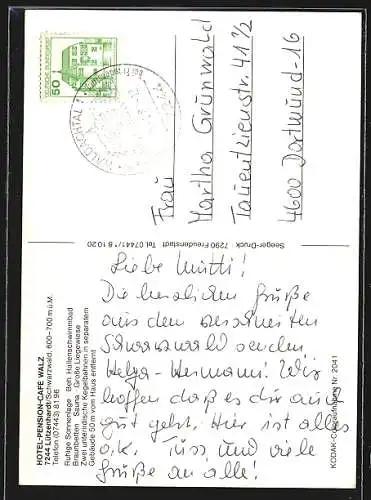 HOTEL-PENSION-CAFE WALZ
7244 Lützenhardt/Schwarzwald, 600-700 m ü.M.
Telefon (07443) 81 96
Ruhige Sonnenlage beh. Hallenschwimmbad
Braunbetten Sauna Große Liegewiese
Zwei unterirdische Kegelbahnen in separatem
Gebäude 50 m vom Haus entfernt
Liebe Mutti!
Die herzlichen Grüße
aus dem
Schwarzwald senden
Helga-Hermann! Wir
hoffen daß es dir auch
gut geht. Hier ist alles
o.k. Tüss, und viele
Grüße an alle!
Seeger-Druck 7290 Freudenstadt Tel. 07441/8 10 20
KODAK-Color Nr. 2041
50
DEUTSCHE BUNDESPOST
WALDACHTAL 1
7244
Frau
Martha Grünwald
Tauentzienstr. 41 1/2
4600 Dortmund-16